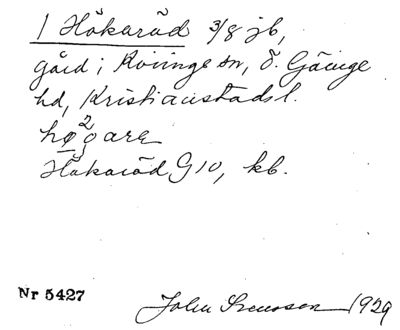 1 Håkaröd 3/8 jb,
gård i Röinge sn, Ö. Göinge
hd, Kristianstads l.
Håkaröd G10, kb.
Nr 5427
John Svensson 1929